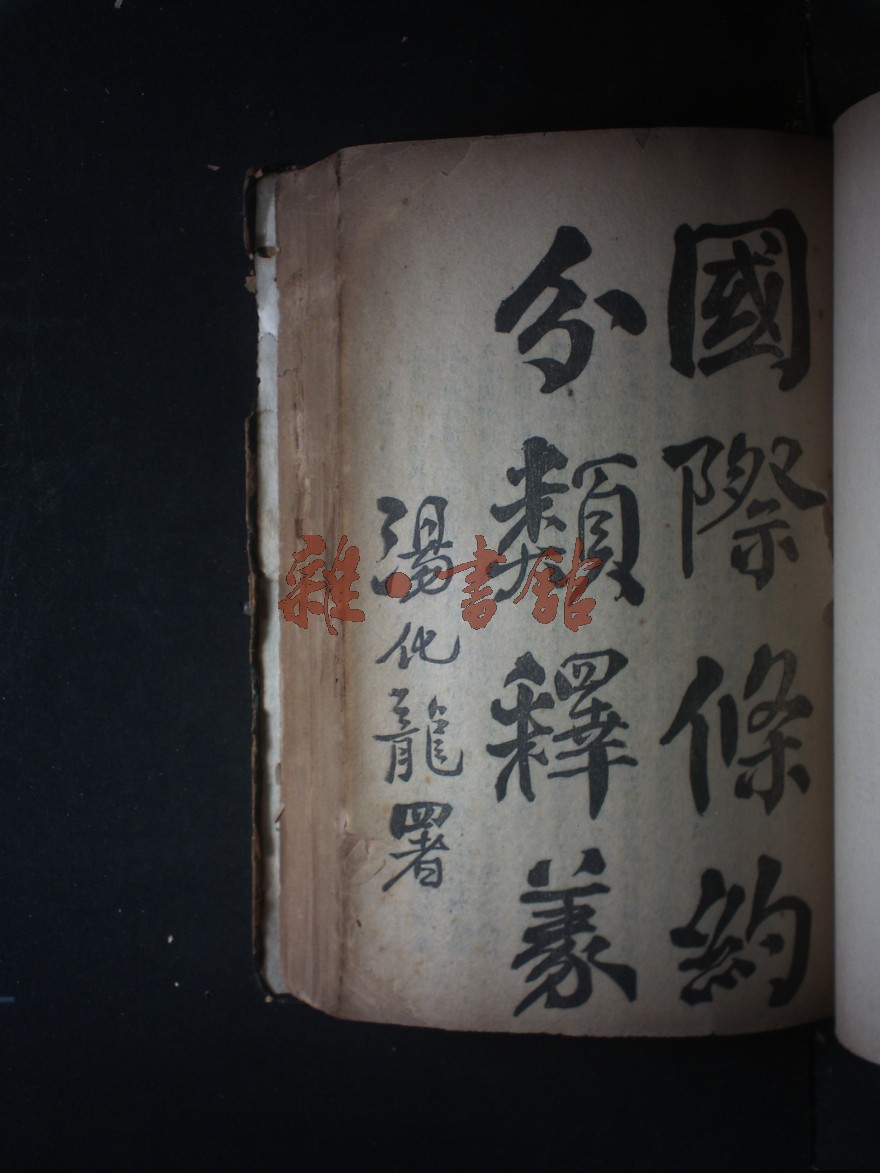 國際條約
分類釋義
湯化龍署
雜·書館